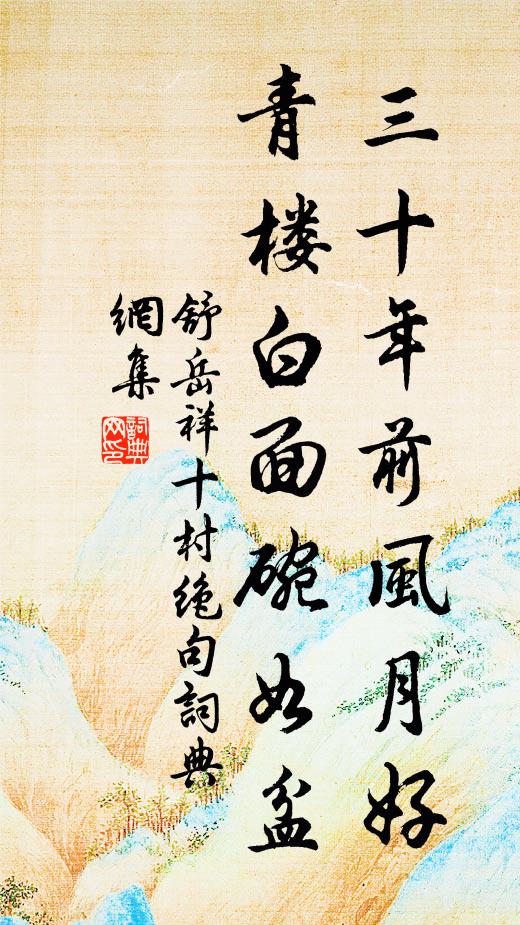 三十年前風月好
青楼白面碗如盆
舒岳祥十村绝句詞典
網集
詞典
网印